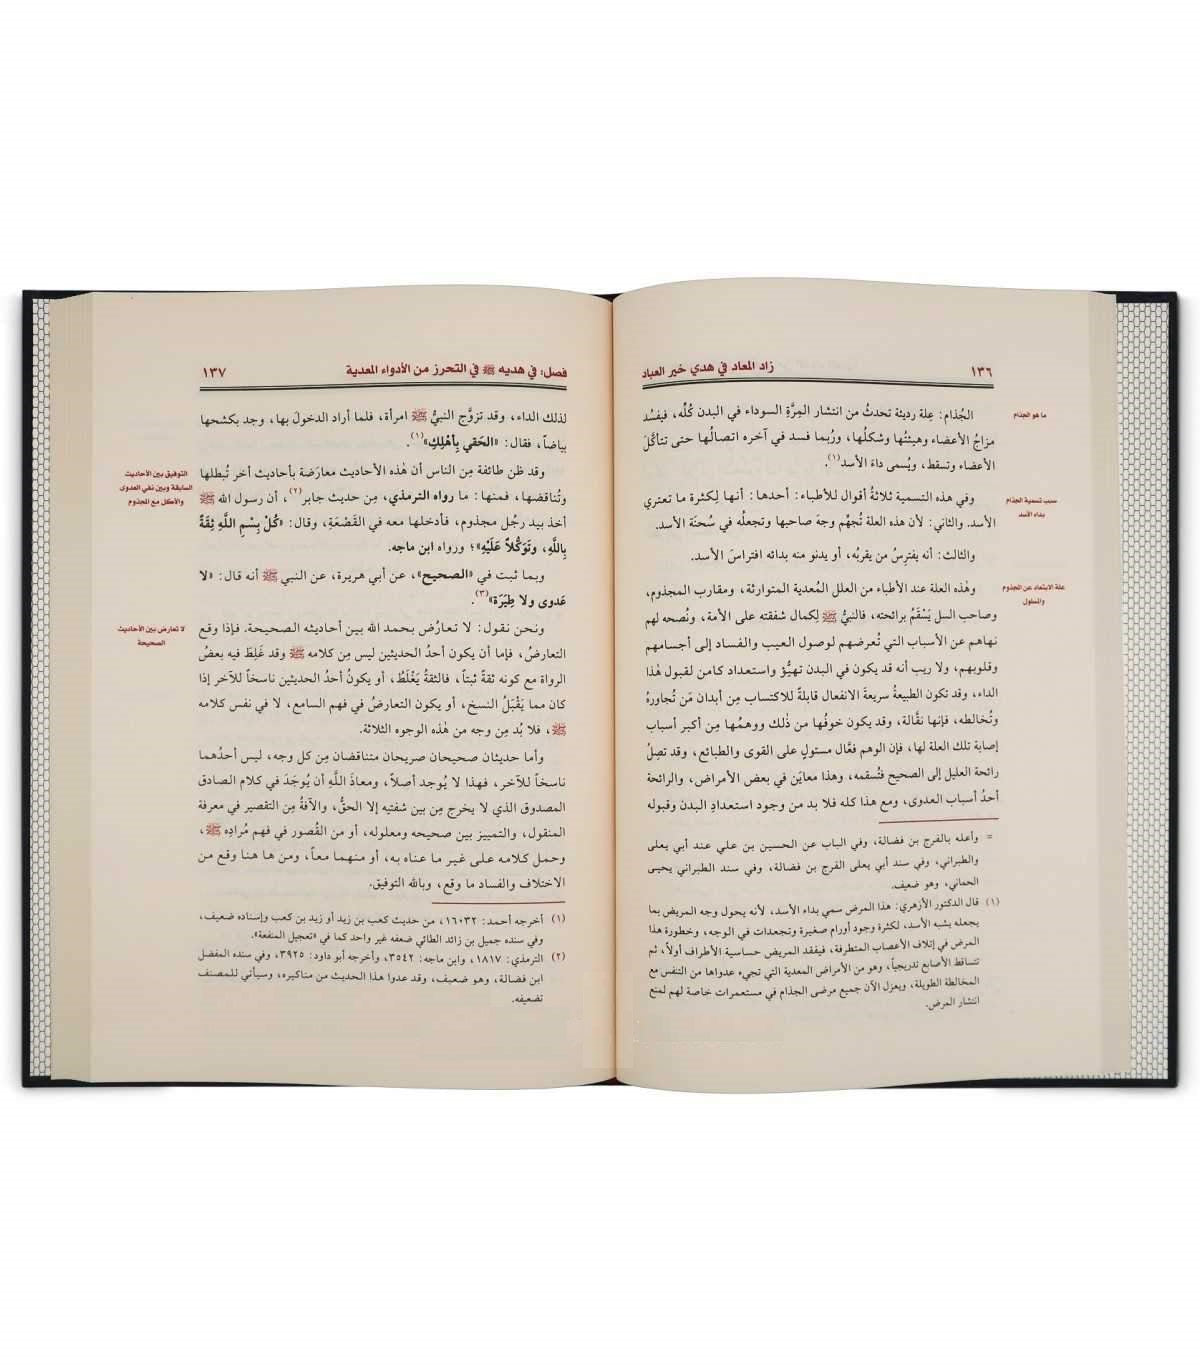 ١٣٦
زاد المعاد في هدي خير العباد
ما هو الجذام
الجُذام: عِلة رديئة تحدثُ من انتشار المِرَّةِ السوداء في البدن كُلِّه، فيفسُد
مزاجُ الأعضاء وهيئتُها وشكلُها، ورُبما فسد في آخره اتصالُها حتى تتأكَّلَ
الأعضاء وتسقط، ويُسمى داءَ الأسد(١).
سبب تسمية الجذام
بداء الأسد
وفي هذه التسمية ثلاثةُ أقوال للأطباء: أحدها: أنها لِكثرة ما تعتري
الأسد. والثاني: لأن هذه العلة تُجهِّم وجهَ صاحبها وتجعلُه في سُحنَة الأسد.
والثالث: أنه يفترِسُ من يقربُه، أو يدنو منه بدائه افتراسَ الأسد.
علة الابتعاد عن المجذوم
والمسلول
وهٰذه العلة عند الأطباء من العلل المُعدية المتوارثة، ومقارب المجذوم،
وصاحب السل يَسْقَمُ برائحته، فالنبيُّ ﷺ لِكمال شفقته على الأمة، ونُصحه لهم
نهاهم عن الأسباب التي تُعرضهم لوصول العيب والفساد إلى أجسامهم
وقلوبهم، ولا ريب أنه قد يكون في البدن تهيُّؤ واستعداد كامن لقبول هٰذا
الداء، وقد تكون الطبيعةُ سريعةَ الانفعال قابلةً للاكتساب مِن أبدان مَن تُجاورهُ
وتُخالطه، فإنها نقَّالة، وقد يكون خوفُها من ذٰلك ووهمُها مِن أكبر أسباب
إصابة تلك العلة لها، فإن الوهم فعَّال مستولٍ على القوى والطبائع، وقد تصِلُ
رائحة العليل إلى الصحيح فتُسقمه، وهذا معايَن في بعض الأمراض، والرائحة
أحدُ أسباب العدوى، ومع هذا كله فلا بد من وجود استعدادِ البدن وقبوله
= وأعله بالفرج بن فضالة، وفي الباب عن الحسين بن علي عند أبي يعلى
والطبراني، وفي سند أبي يعلى الفرج بن فضالة، وفي سند الطبراني يحيى
الحماني، وهو ضعيف.
(١) قال الدكتور الأزهري: هذا المرض سمي بداء الأسد، لأنه يحول وجه المريض بما
يجعله يشبه الأسد، لكثرة وجود أورام صغيرة وتجعدات في الوجه، وخطورة هذا
المرض في إتلاف الأعصاب المتطرفة، فيفقد المريض حساسية الأطراف أولاً، ثم
تتساقط الأصابع تدريجياً، وهو من الأمراض المعدية التي تجيء عدواها من التنفس مع
المخالطة الطويلة، ويعزل الآن جميع مرضى الجذام في مستعمرات خاصة لهم لمنع
انتشار المرض.
فصل: في هديه ﷺ في التحرز من الأدواء المعدية
١٣٧
لذلك الداء، وقد تزوَّج النبيُّ ﷺ امرأة، فلما أراد الدخولَ بها، وجد بكشحها
بياضاً، فقال: «الحَقي بِأهْلِكِ»(١).
التوفيق بين الأحاديث
السابقة وبين نفي العدوى
والأكل مع المجذوم
وقد ظن طائفة مِن الناس أن هٰذه الأحاديث معارَضة بأحاديث أخر تُبطلها
وتُناقضها، فمنها: ما رواه الترمذي، مِن حديث جابر(٢)، أن رسول الله ﷺ
أخذ بيد رجُل مجذوم، فأدخلها معه في القَصْعَةِ، وقال: «كُلْ بِسْمِ اللَّهِ ثِقَةً
بِاللَّهِ، وتَوَكُّلاً عَلَيْهِ»؛ ورواه ابن ماجه.
وبما ثبت في «الصحيح»، عن أبي هريرة، عن النبي ﷺ أنه قال: «لا
عَدوى ولا طِيَرَة»(٣).
لا تعارض بين الأحاديث
الصحيحة
ونحن نقول: لا تعارُض بحمد الله بين أحاديثه الصحيحة. فإذا وقع
التعارضُ، فإما أن يكون أحدُ الحديثين ليس مِن كلامه ﷺ وقد غَلِطَ فيه بعضُ
الرواة مع كونه ثقةً ثبتاً، فالثقةُ يَغْلَطُ، أو يكونُ أحدُ الحديثين ناسخاً للآخر إذا
كان مما يَقْبَلُ النسخ، أو يكون التعارضُ في فهم السامع، لا في نفس كلامه
ﷺ، فلا بُد مِن وجه من هٰذه الوجوه الثلاثة.
وأما حديثان صحيحان صريحان متناقضان مِن كل وجه، ليس أحدُهما
ناسخاً للآخر، فهذا لا يُوجد أصلاً، ومعاذَ اللَّهِ أن يُوجَدَ في كلام الصادق
المصدوق الذي لا يخرج مِن بين شفتيه إلا الحقُّ، والآفةُ مِن التقصير في معرفة
المنقول، والتمييز بين صحيحه ومعلوله، أو من القُصور في فهم مُراده ﷺ،
وحمل كلامه على غير ما عناه به، أو منهما معاً، ومن ها هنا وقع من
الاختلاف والفساد ما وقع، وبالله التوفيق.
(١) أخرجه أحمد: ١٦٠٣٢، من حديث كعب بن زيد أو زيد بن كعب وإسناده ضعيف،
وفي سنده جميل بن زائد الطائي ضعفه غير واحد كما في «تعجيل المنفعة».
(٢) الترمذي: ١٨١٧، وابن ماجه: ٣٥٤٢، وأخرجه أبو داود: ٣٩٢٥، وفي سنده المفضل
ابن فضالة، وهو ضعيف، وقد عدوا هذا الحديث من مناكيره، وسيأتي للمصنف
تضعيفه.